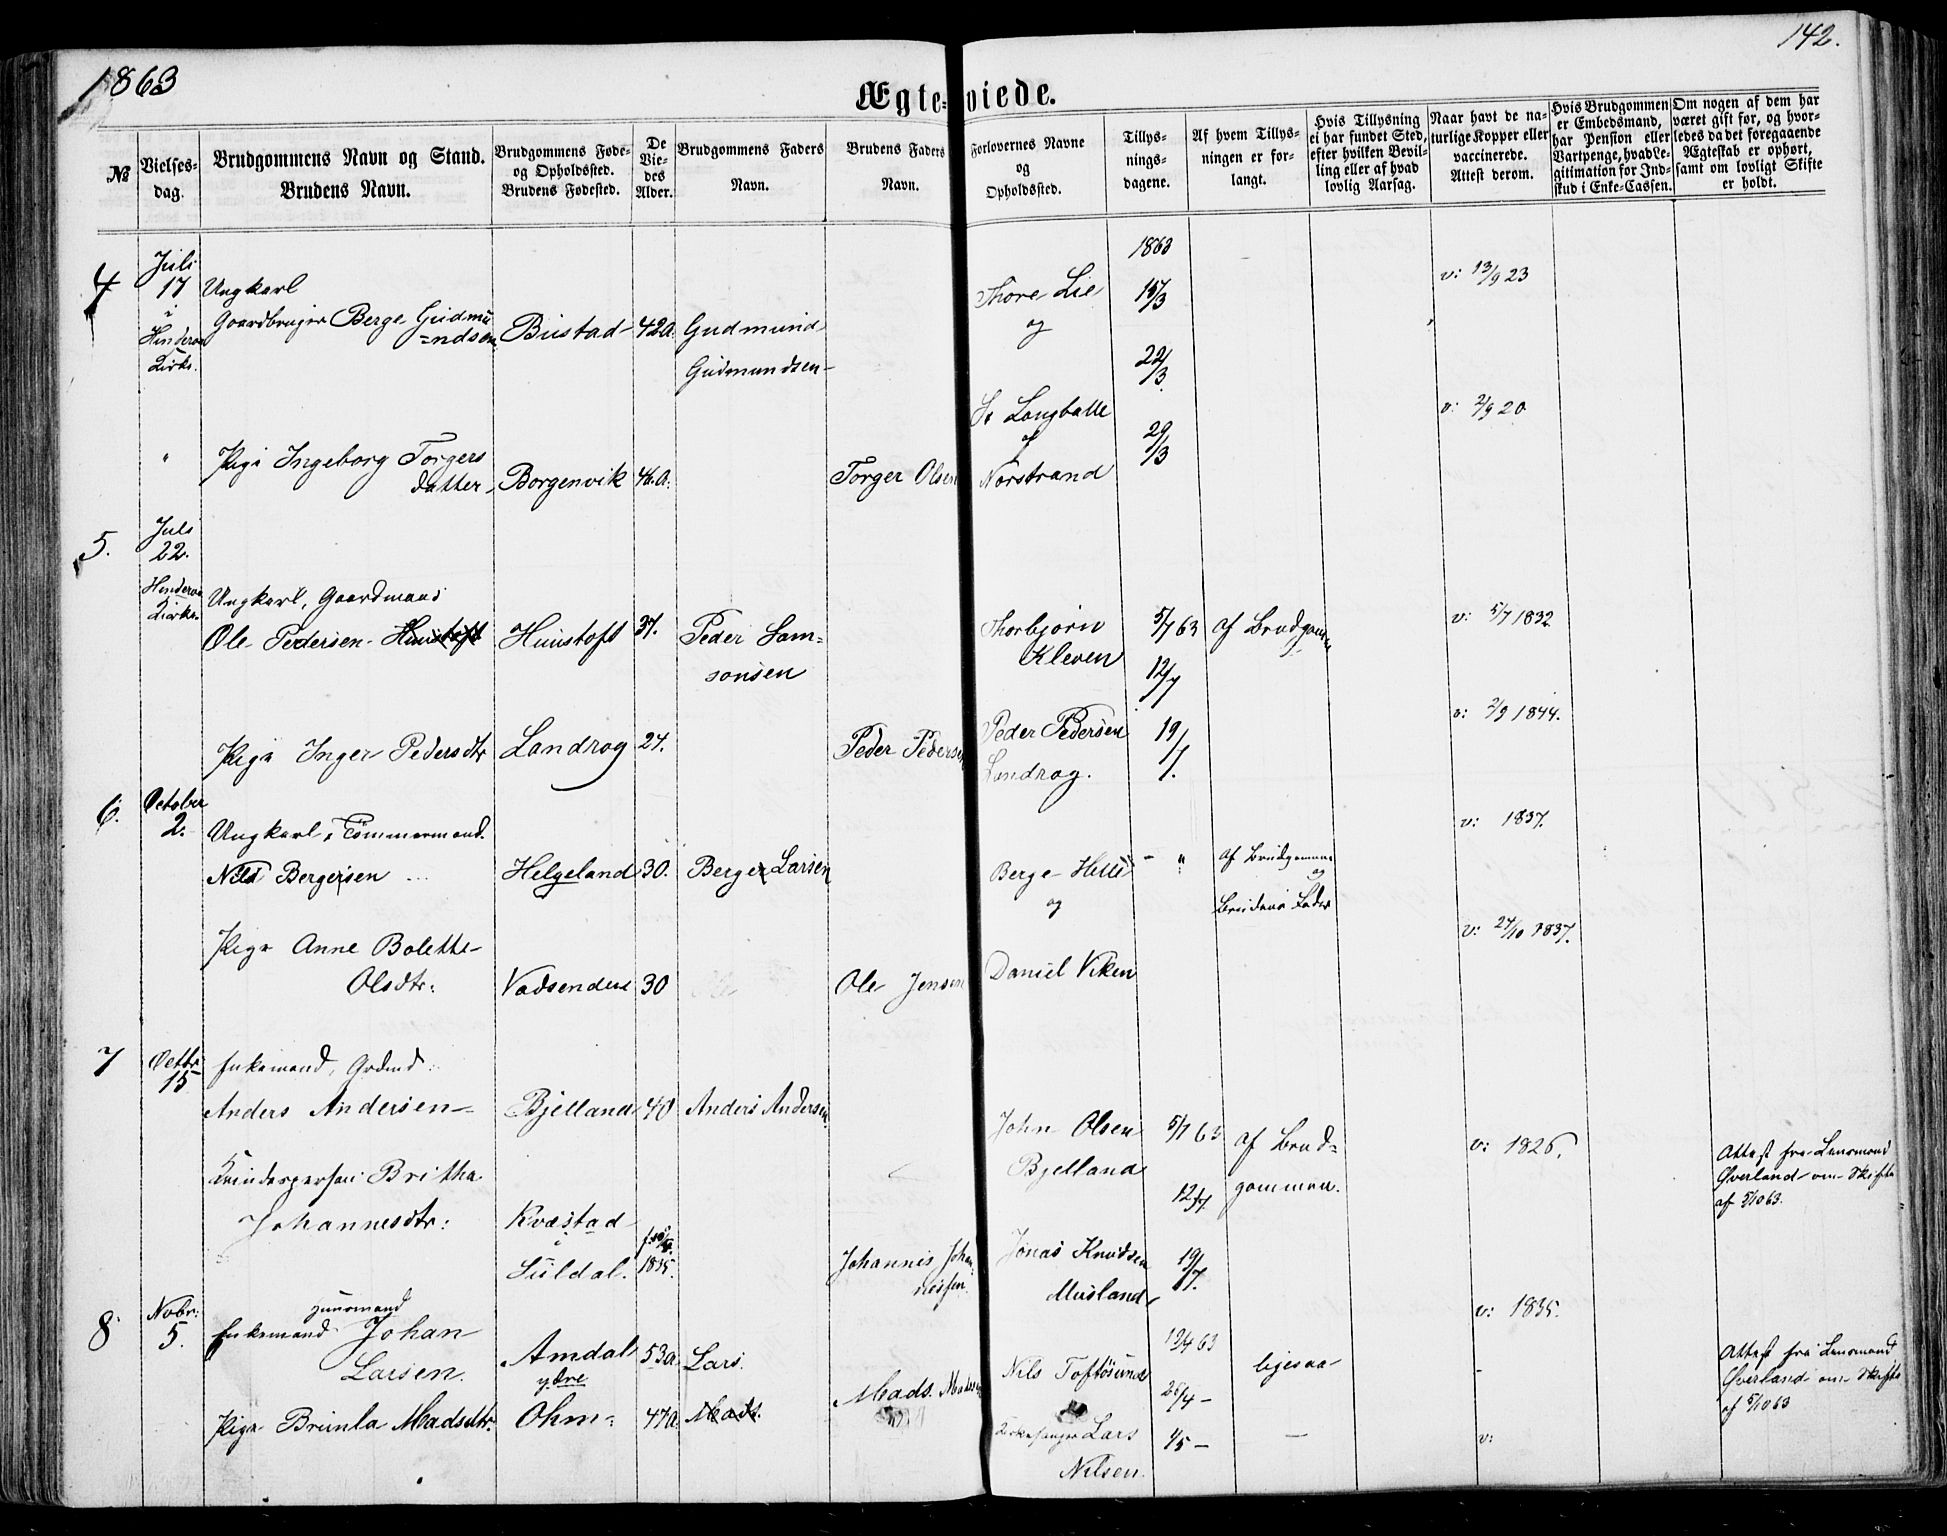 1863
142.
Ægteviede.
№
Vielses-
dag.
Brudgommens Navn og Stand.
Brudens Navn.
Brudgommens Føde-
og Opholdssted.
Brudens Fødested.
De
Vie-
des
Alder.
Brudgommens Faders
Navn.
Brudens Faders
Navn.
Forlovernes Navne
og
Opholdssted.
Tillys-
nings-
dagene.
Af hvem Tillys-
ningen er for-
langt.
Hvis Tillysning
ei har fundet Sted,
efter hvilken Bevil-
ling eller af hvad
lovlig Aarsag.
Naar havt de na-
turlige Kopper eller
vaccinerede.
Attest derom.
Hvis Brudgommen
er Embedsmand,
har Pension eller
Vartpenge, hvad Le-
gitimation for Ind-
skud i Enke-Cassen.
Om nogen af dem har
været gift før, og hvor-
ledes da det foregaaende
Ægteskab er ophørt,
samt om lovligt Skifte
er holdt.
4
Juli
17
i
Hinderaa
Kirke.
Ungkarl
Gaardbruger Berge Gudmu
=ndsen
Bustad
42 a.
Gudmund
Gudmundsen
Thore Lie
og
1863
15/3
22/3
29/3
v: 13/9 23
"
Pige Ingeborg Torgers
datter,
Borgenvik
46 a.
Torger Olsen
Langballe
af
Norstrand
v: 2/9 20
5.
Juli
22.
Hinderaa
Kirke.
Ungkarl, Gaardmand
Ole Pedersen Huustoft
Huustoft
37.
Peder Sam=
sonsen
Thorbjørn
Kleven
5/7 63
12/7
19/7.
af Brudgom
v: 5/7 1832
Pige Inger Pedersdtr
Landrog
24.
Peder Pedersen
Peder Pedersen
Landrog.
v: 2/9 1844.
6.
October
2.
Ungkarl, Tømmermand.
Nils Bergersen
Helgeland
30.
Berger Larsen
Berge Helle
og
- "
af Brudgommen
og
Brudens Fader
v: 1837.
Pige Anne Bolette
Olsdtr:
Vadsenden
30
Ole Jensen
Daniel Viken
v: 24/10 1837.
7
Octbr:
15
Enkemand, Grdmd:
Anders Andersen
Bjelland
40
Anders Andersen
John Olsen
Bjelland
5/7 63
12/7
19/7.
af Brud=
gommen.
v: 1826.
Attest fra Lensmand
Øverland om Skifte
af 5/10 63.
Kvindesperson Britha
Johannesdtr:
Kvæstad
i
Suldal.
1835.
Johannis Johan=
nessen.
Jonas Knudsen
Musland
v: 1835.
8
Novbr:
5.
Huusmand
Enkemand Johan
Larsen.
Amdal
ydre
53 a.
Lars.
Nils Toftøsund
12/4 63
26/4 -
3/5 -
ligesaa
-
Attest fra Lensmand
Øverland om Skifte
af 5/10 63
Pige Brunla Madsdtr.
Ohm
47 a.
Mads.
Mads. Madsen
Kirkesanger Lars
Nilsen.
-
v: